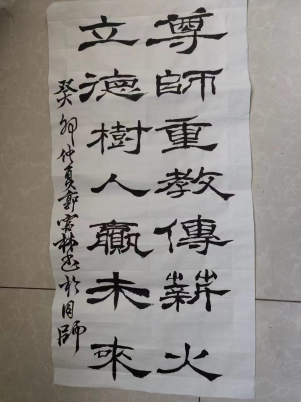 尊師重教傳薪火
立德樹人贏未來
癸卯仲夏郭富林書於固師